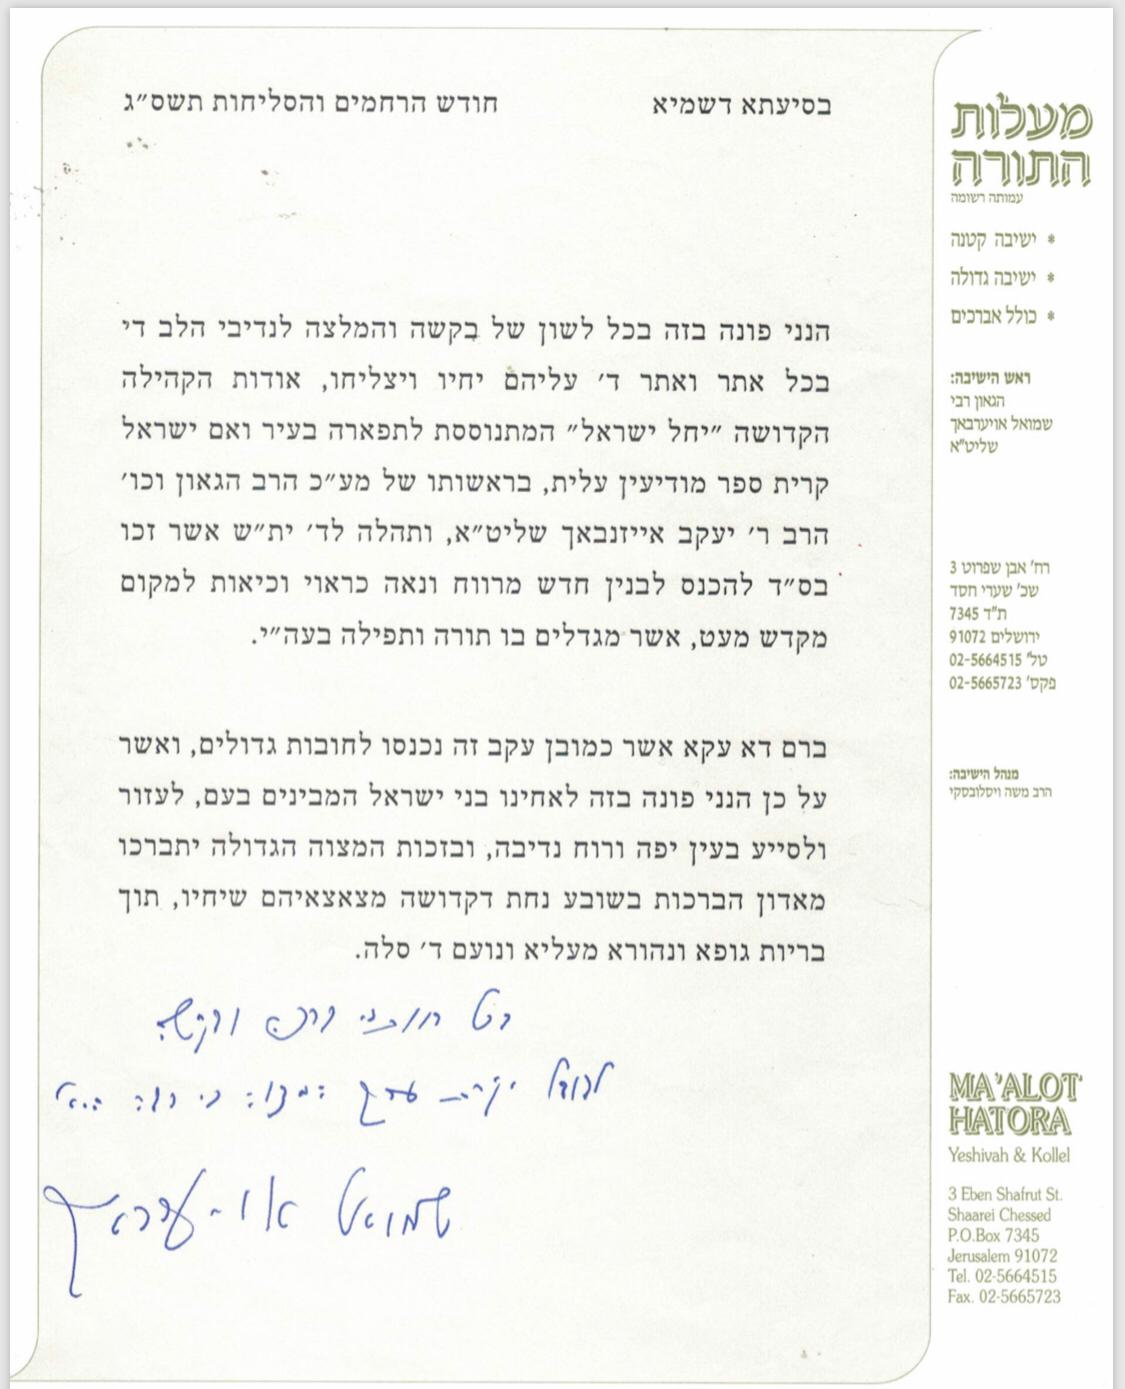 בסיעתא דשמיא חודש הרחמים והסליחות תשס״ג
הנני פונה בזה בכל לשון של בקשה והמלצה לנדיבי הלב די
בכל אתר ואתר ד׳ עליהם יחיו ויצליחו, אודות הקהילה
הקדושה ״יחל ישראל״ המתנוססת לתפארה בעיר ואם ישראל
קרית ספר מודיעין עלית, בראשותו של מע״כ הרב הגאון וכו׳
הרב ר׳ יעקב אייזנבאך שליט״א, ותהלה לד׳ ית״ש אשר זכו
בס״ד להכנס לבנין חדש מרווח ונאה כראוי וכיאות למקום
מקדש מעט, אשר מגדלים בו תורה ותפילה בעה״י.
ברם דא עקא אשר כמובן עקב זה נכנסו לחובות גדולים, ואשר
על כן הנני פונה בזה לאחינו בני ישראל המבינים בעם, לעזור
ולסייע בעין יפה ורוח נדיבה, ובזכות המצוה הגדולה יתברכו
מאדון הברכות בשובע נחת דקדושה מצאצאיהם שיחיו, תוך
בריות גופא ונהורא מעליא ונועם ד׳ סלה.
לגודל יקרת ערך המצוה כי רבה היא
שמואל אויערבאך
מעלות
התורה
עמותה רשומה
* ישיבה קטנה
* ישיבה גדולה
* כולל אברכים
ראש הישיבה:
הגאון רבי
שמואל אויערבאך
שליט״א
רח׳ אבן שפרוט 3
שכ׳ שערי חסד
ת״ד 7345
ירושלים 91072
טל׳ 02-5664515
פקס׳ 02-5665723
מנהל הישיבה:
הרב משה ויסלובסקי
MA'ALOT
HATORA
Yeshivah & Kollel
3 Eben Shafrut St.
Shaarei Chessed
P.O.Box 7345
Jerusalem 91072
Tel. 02-5664515
Fax. 02-5665723